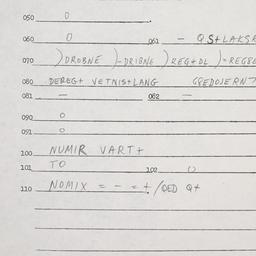 050 0
060 0 061 - QS+LAKSR
070 )DROBNE )-DRIBNE )REG+DL )=REGBE
080 DEREG+ VETNIS+LANG
081 - 082 -
090 0
091 0
100 NUMIR VART+
101 TO 102 0
110 NOMIX = - = + / DED Q+